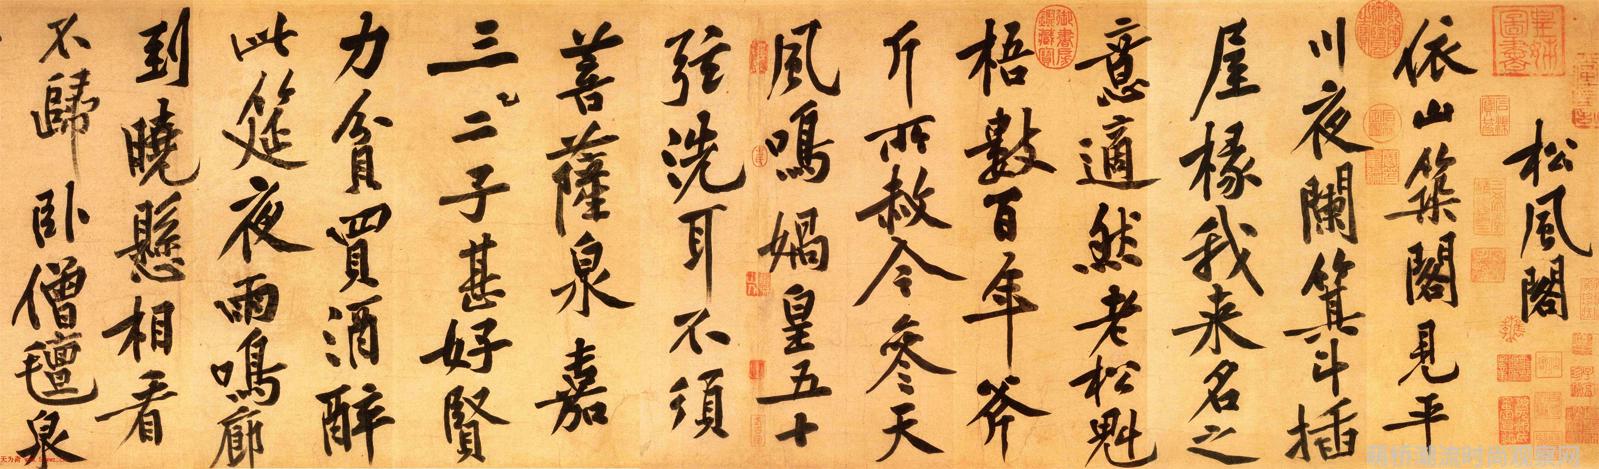 松風閣
依山築閣見平
川夜闌箕斗插
屋椽我来名之
意適然老松魁
梧數百年斧
斤所赦今參天
風鳴媧皇五十
弦洗耳不須
菩薩泉嘉
三二子甚好賢
力貧買酒醉
此筵夜雨鳴廊
到曉懸相看
不歸卧僧氊泉
皇姊圖書
御書房鑑藏寶